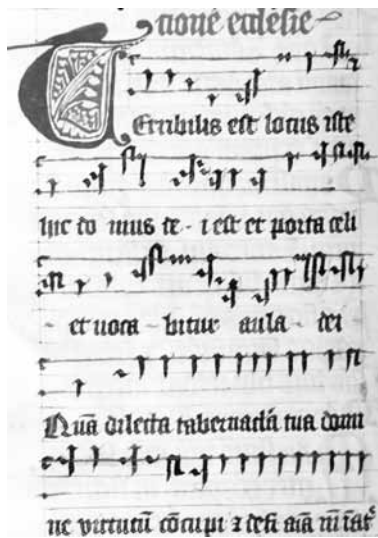 tionē ecclesie
Terribilis est locus iste
hic do mus de - i est et porta celi
- et uoca - bitur aula - dei
Quā dilecta tabernacĺa tua domi
ne virtutū cōcupi ⁊ defi aīa